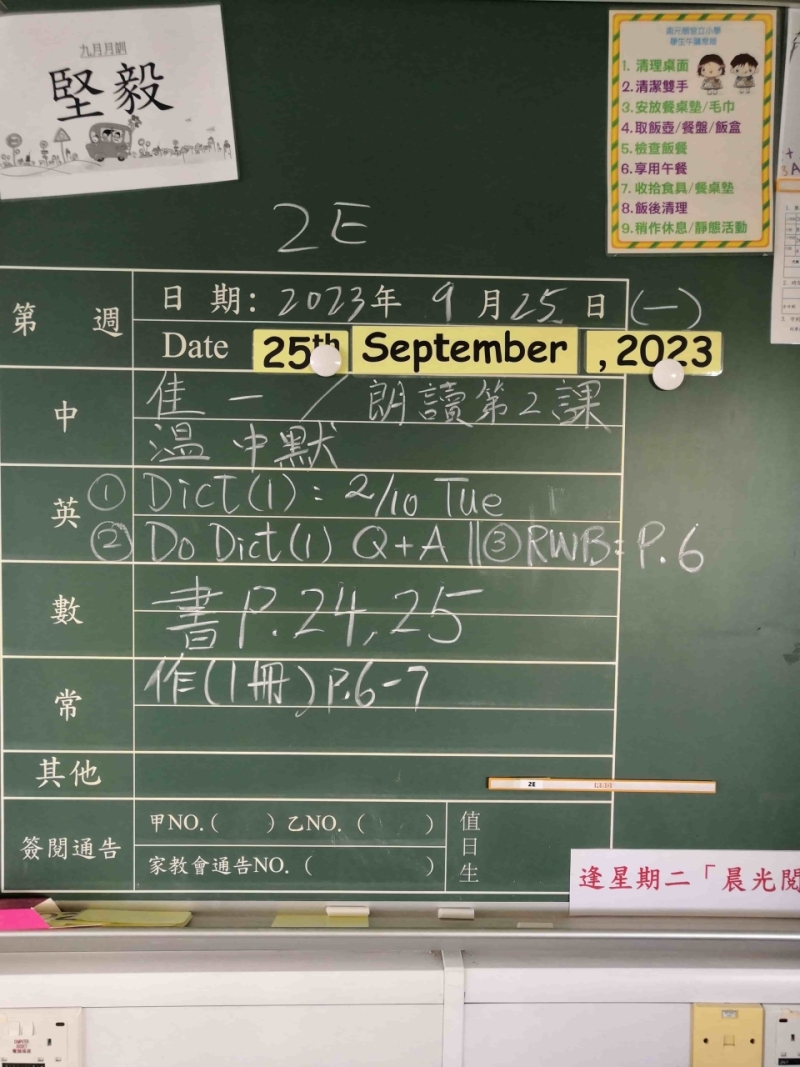 九月月訓
堅毅
學生午膳常規
1. 清理桌面
2. 清潔雙手
3. 安放餐桌墊/毛巾
4. 取飯壺/餐盤/飯盒
5. 檢查飯餐
6. 享用午餐
7. 收拾食具/餐桌墊
8. 飯後清理
9. 稍作休息/靜態活動
2E
第 週
日 期: 2023年 9 月 25 日 (一)
Date 25th September , 2023
中
佳 一 / 朗讀第2課
溫 中默
英
① Dict(1): 2/10 Tue
② Do Dict(1) Q+A || ③ RWB: P.6
數
書 P.24,25
常
作(1冊) P.6-7
其他
2E
簽閱通告
甲NO.( ) 乙NO. ( )
家教會通告NO. ( )
值日生
逢星期二「晨光閱